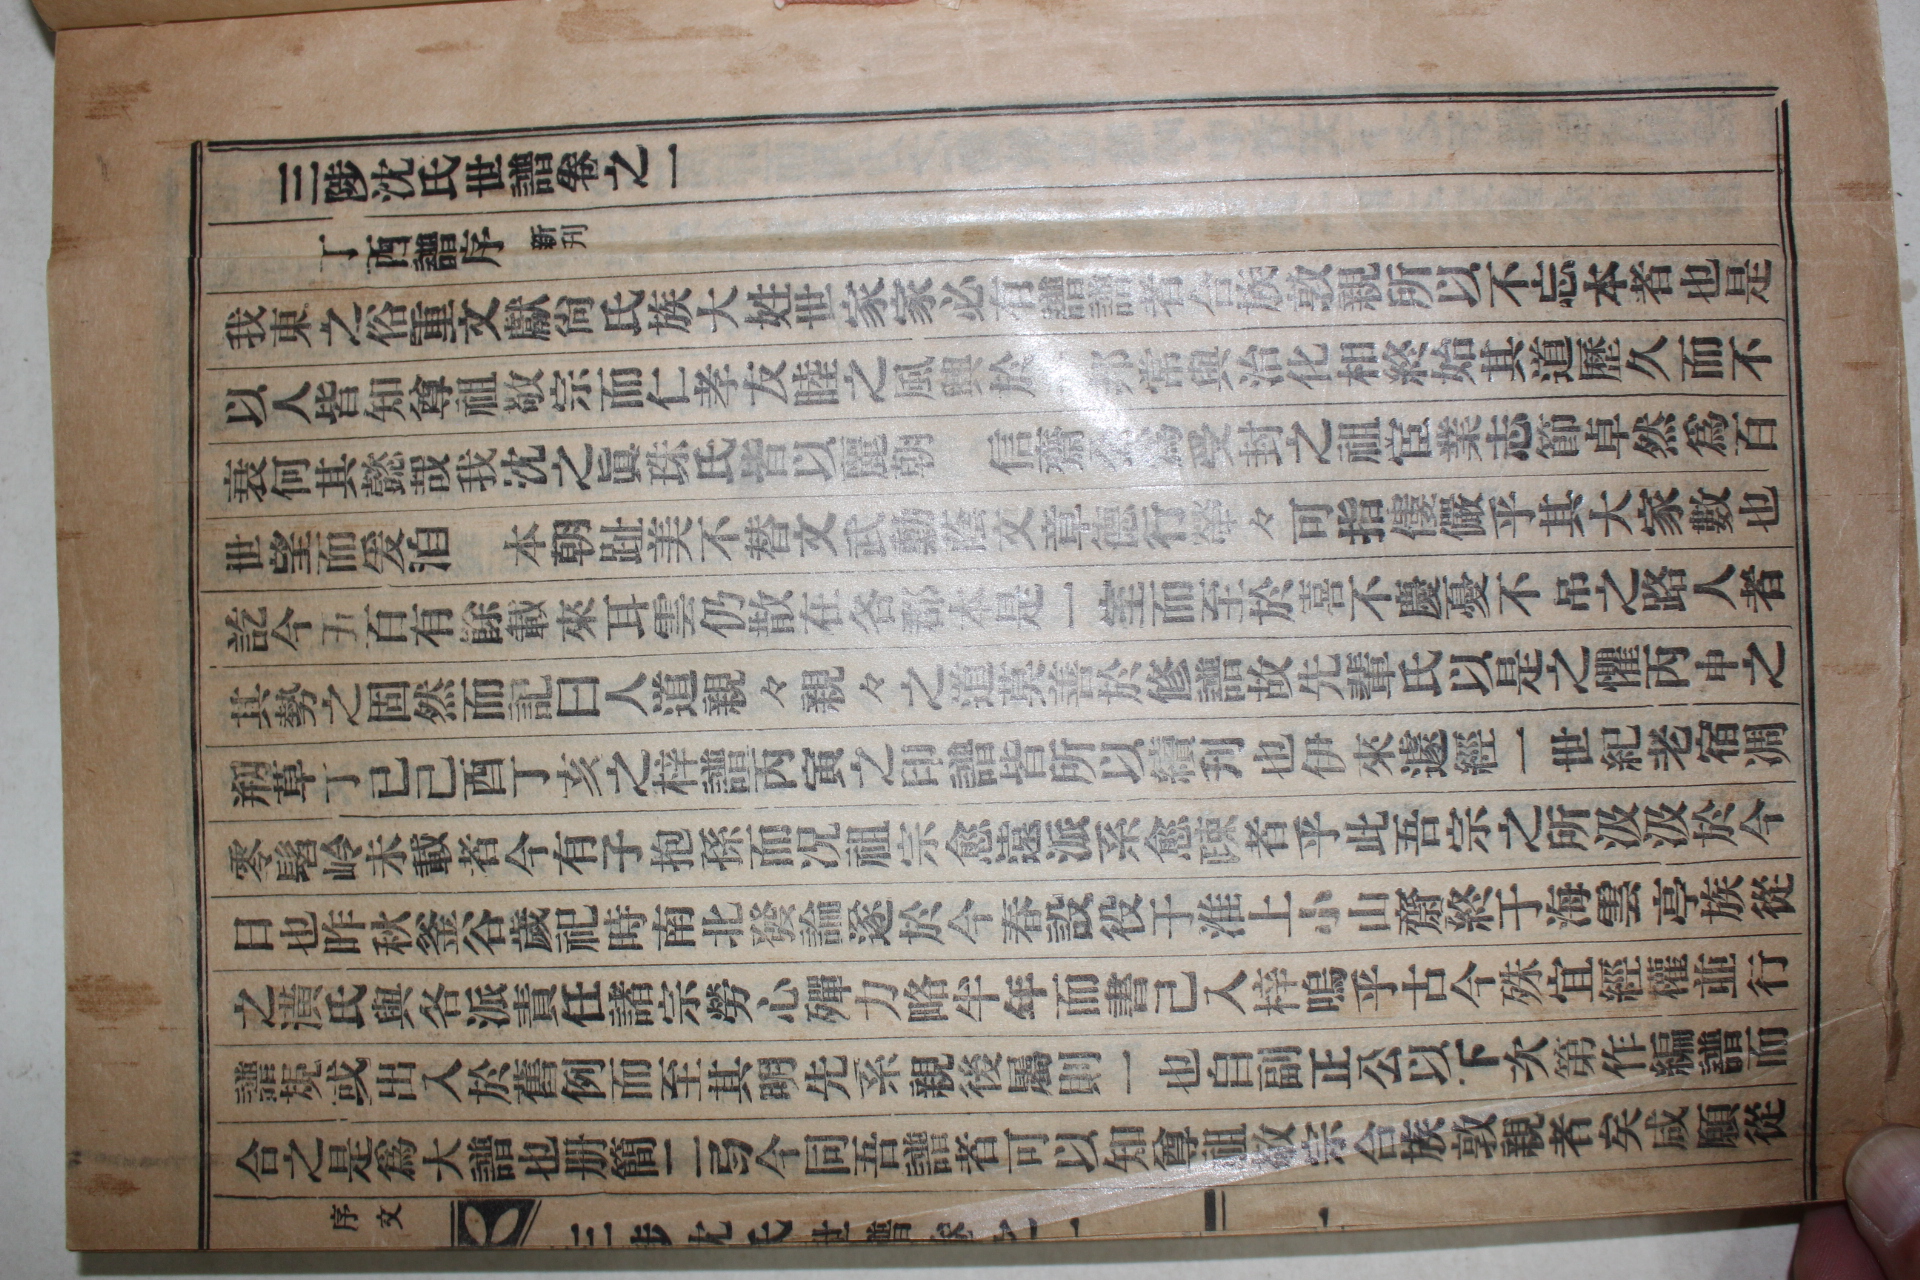 三陟沈氏世譜卷之一
丁酉譜序 新刊
我東之俗重文獻尙氏族大姓世家家必有譜譜者合族敦親所以不忘本者也是
以人皆知尊祖敬宗而仁孝友睦之風興於 常與治化相終始其道歷久而不
衰何其懿哉我沈之眞珠氏皆以麗朝 信齋公爲受封之祖宦業志節卓然爲百
世望而爰洎 本朝趾美不替文武勳蔭文章德行犖々可指僂儼乎其大家數也
訖今五百有餘載來耳雲仍散在各 本是一室而至於喜不慶憂不吊之路人者
其勢之固然而記曰人道親々親々之道莫善於修譜故先輩氏以是之懼丙申之
刱草丁巳己酉丁亥之梓譜丙寅之印譜皆所以續刋也伊來遽經一世紀老宿凋
零髫齡未載者今有子抱孫而况祖宗愈遠派系愈 者乎此吾宗之所汲汲於今
日也昨秋釜谷歲祀時南北發論遂於今春設役于淮上小山齋終于海雲亭族從
之潢氏與各派責任諸宗勞心殫力略半年而書已入梓嗚乎古今殊宜經權並行
譜規或出入於舊例而至其明先系親後屬則一也自副正公以下次第作編譜而
合之是爲大譜也册簡一二 今同吾譜者可以知尊祖敬宗合族敦親者矣咸願從
序文
三陟沈氏世譜卷之一
一